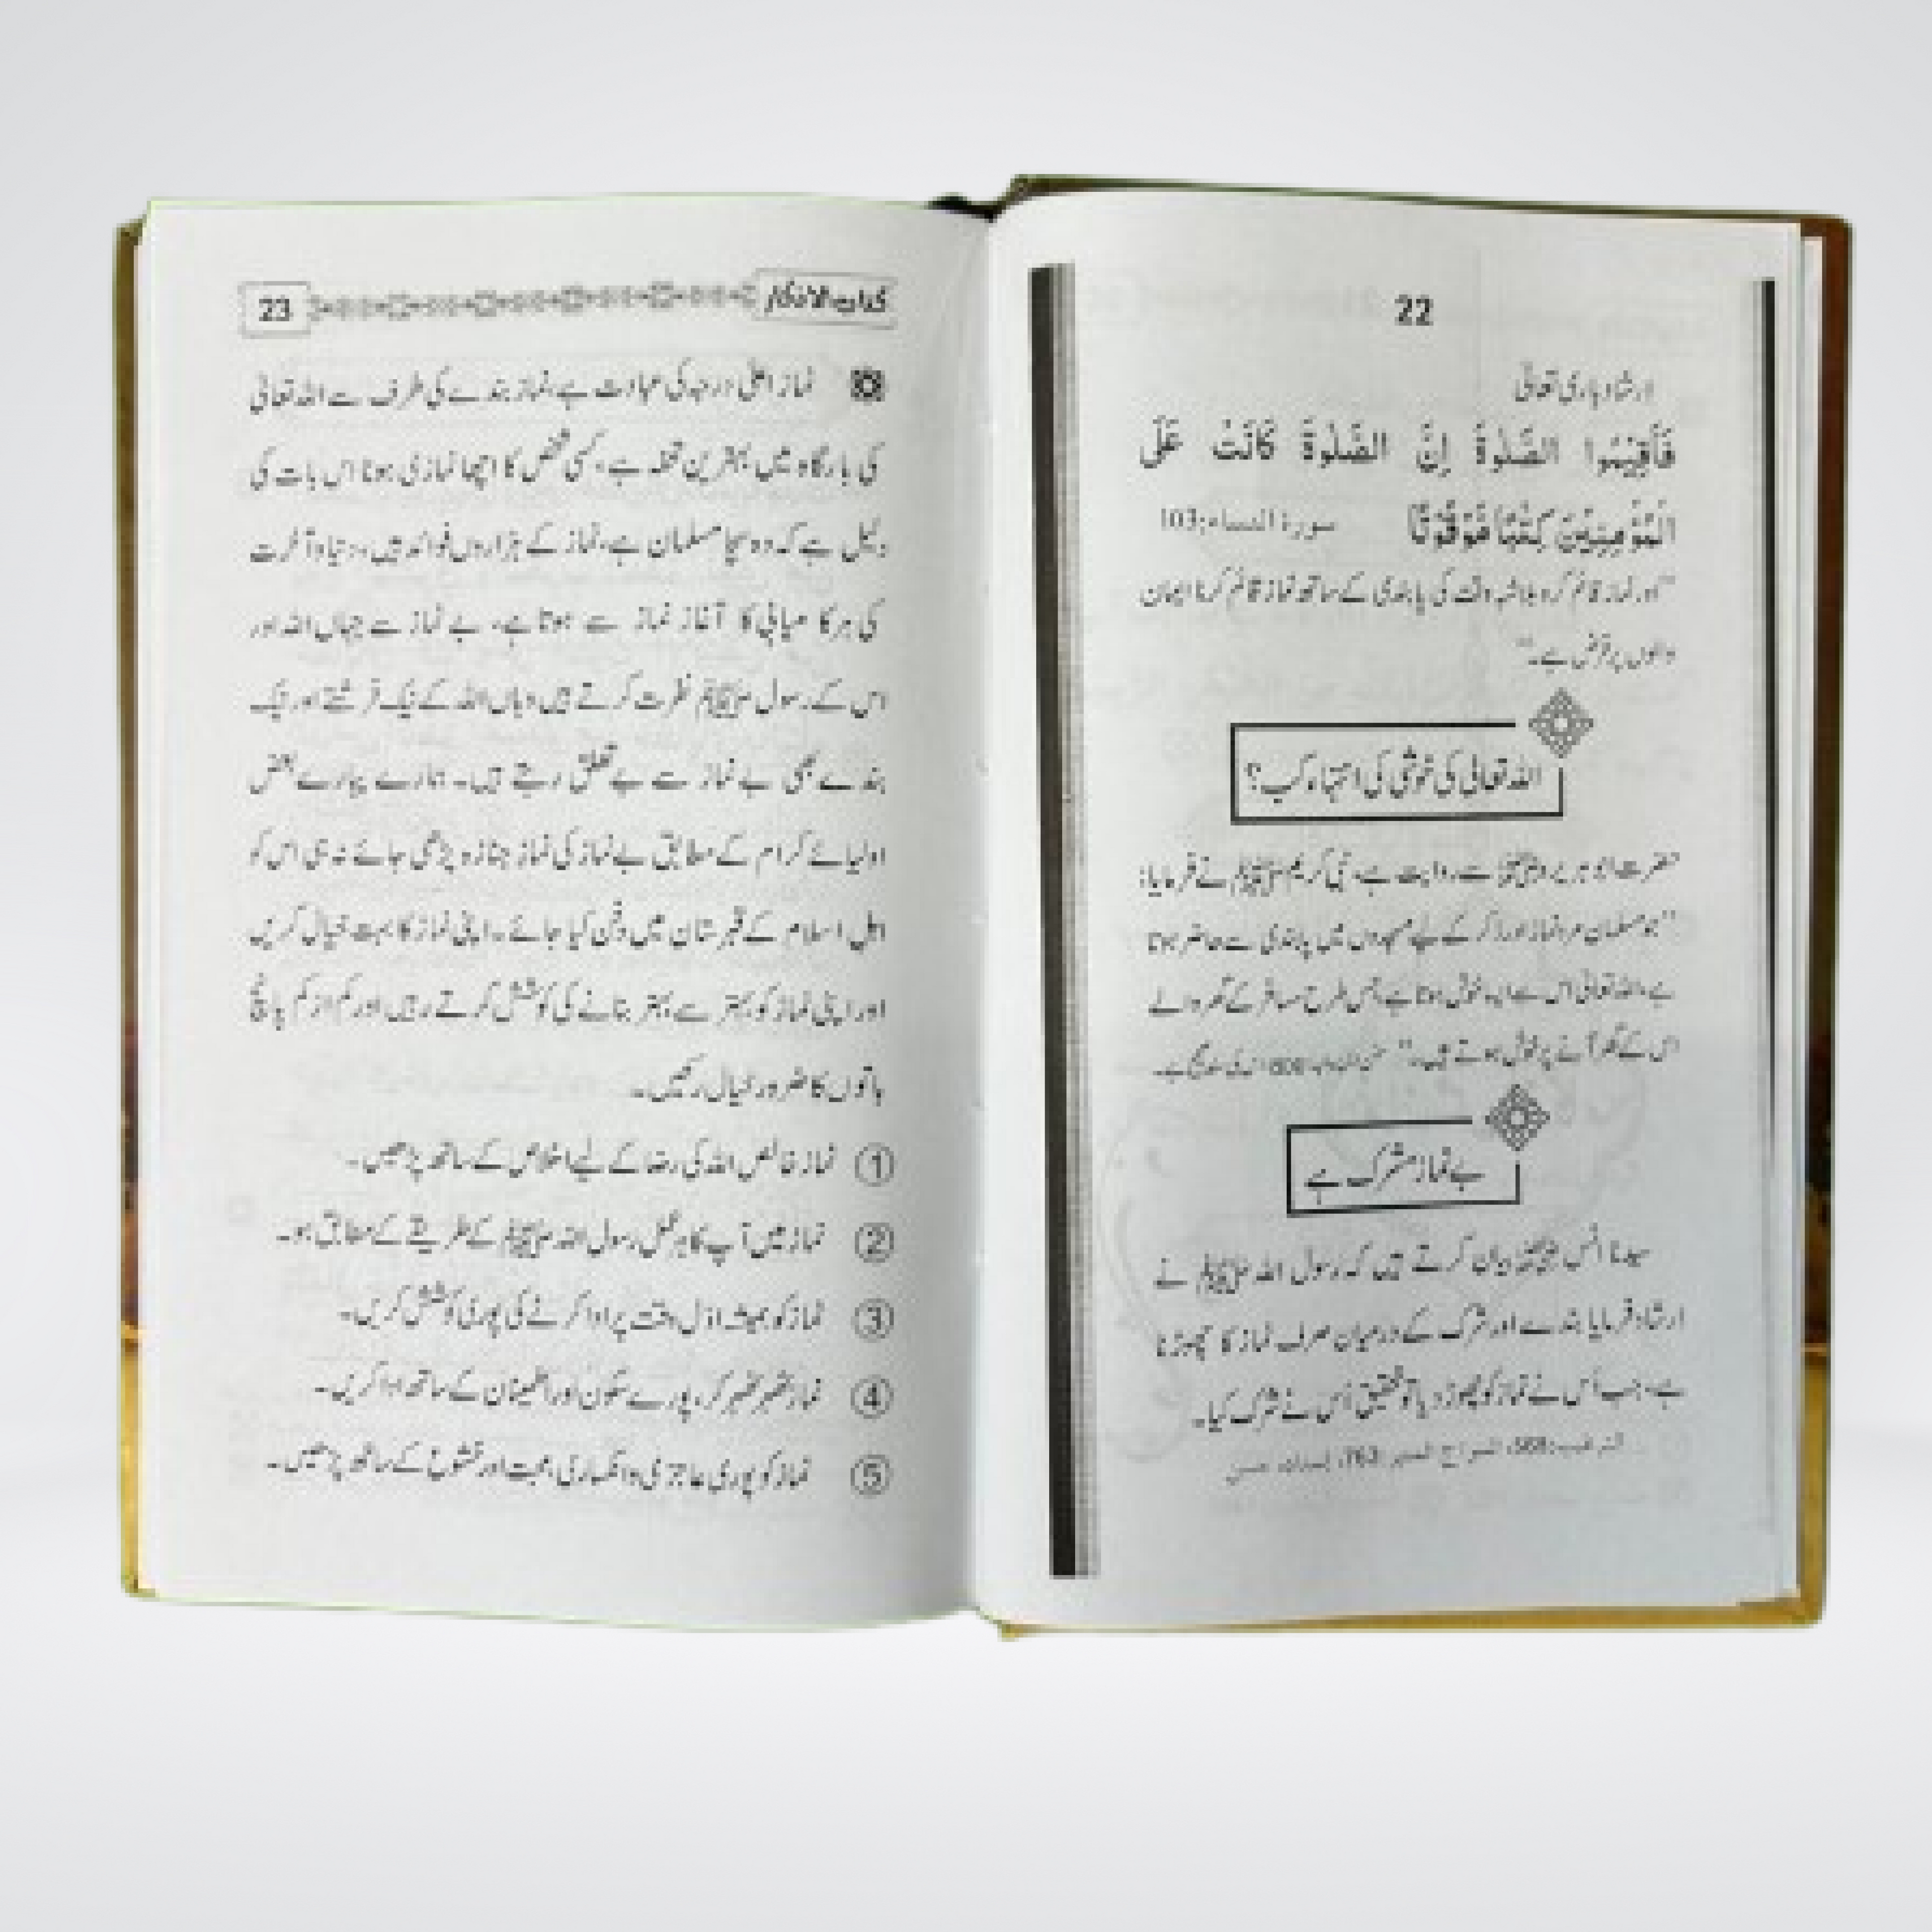 22
ارشاد باری تعالٰی
فَاَقِيْمُوا الصَّلٰوةَ اِنَّ الصَّلٰوةَ كَانَتْ عَلَى
الْمُؤْمِنِيْنَ كِتٰبًا مَّوْقُوْتًا سورۃ النساء:103
"اور نماز قائم کرو بلاشبہ وقت کی پابندی کے ساتھ نماز قائم کرنا ایمان
والوں پر فرض ہے۔"
اللہ تعالٰی کی خوشی کی انتہاء کب؟
حضرت ابو ہریرہ رضی اللہ عنہ سے روایت ہے، نبی کریم ﷺ نے فرمایا:
"جو مسلمان مرد نماز اور ذکر کے لیے مسجدوں میں پابندی سے حاضر ہوتا
ہے، اللہ تعالٰی اس سے ایسا خوش ہوتا ہے جس طرح مسافر کے گھر والے
اس کے گھر آنے پر خوش ہوتے ہیں۔" سنن ابن ماجہ: 800
بے نماز مشرک ہے
سیدنا انس رضی اللہ عنہ بیان کرتے ہیں کہ رسول اللہ ﷺ نے
ارشاد فرمایا بندے اور شرک کے درمیان صرف نماز کا چھوڑنا
ہے، جب اُس نے نماز کو چھوڑ دیا تو تحقیق اُس نے شرک کیا۔
الترغیب:568، السراج المنیر:763، إسناده حسن
كتاب الاذكار 23
نماز اعلٰی درجہ کی عبادت ہے، نماز بندے کی طرف سے اللہ تعالٰی
کی بارگاہ میں بہترین تحفہ ہے، کسی شخص کا اچھا نمازی ہونا اس بات کی
دلیل ہے کہ وہ سچا مسلمان ہے، نماز کے ہزاروں فوائد ہیں، دنیا و آخرت
کی ہر کامیابی کا آغاز نماز سے ہوتا ہے، بے نماز سے جہاں اللہ اور
اس کے رسول ﷺ نفرت کرتے ہیں وہاں اللہ کے نیک فرشتے اور نیک
بندے بھی بے نماز سے بے تعلق رہتے ہیں۔ ہمارے پیارے بعض
اولیائے کرام کے مطابق بے نماز کی نماز جنازہ پڑھی جائے نہ ہی اس کو
اہلِ اسلام کے قبرستان میں دفن کیا جائے۔ اپنی نماز کا بہت خیال کریں
اور اپنی نماز کو بہتر سے بہتر بنانے کی کوشش کرتے رہیں اور کم از کم پانچ
باتوں کا ضرور خیال رکھیں۔
① نماز خالص اللہ کی رضا کے لیے اخلاص کے ساتھ پڑھیں۔
② نماز میں آپ کا ہر عمل رسول اللہ ﷺ کے طریقے کے مطابق ہو۔
③ نماز کو ہمیشہ اوّل وقت پر ادا کرنے کی پوری کوشش کریں۔
④ نماز ٹھہر ٹھہر کر، پورے سکون اور اطمینان کے ساتھ ادا کریں۔
⑤ نماز کو پوری عاجزی و انکساری، محبت اور خشوع کے ساتھ پڑھیں۔